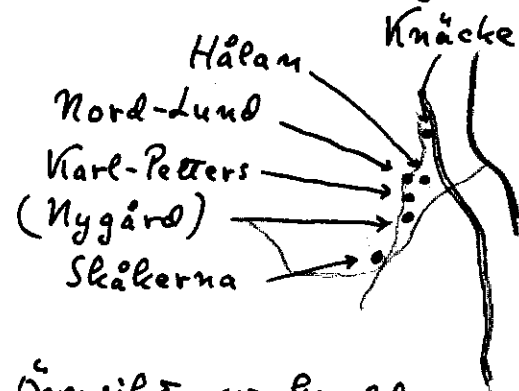 Knäcke
Hålan
Nord-Lund
Karl-Petters
(Nygård)
Skåkerna